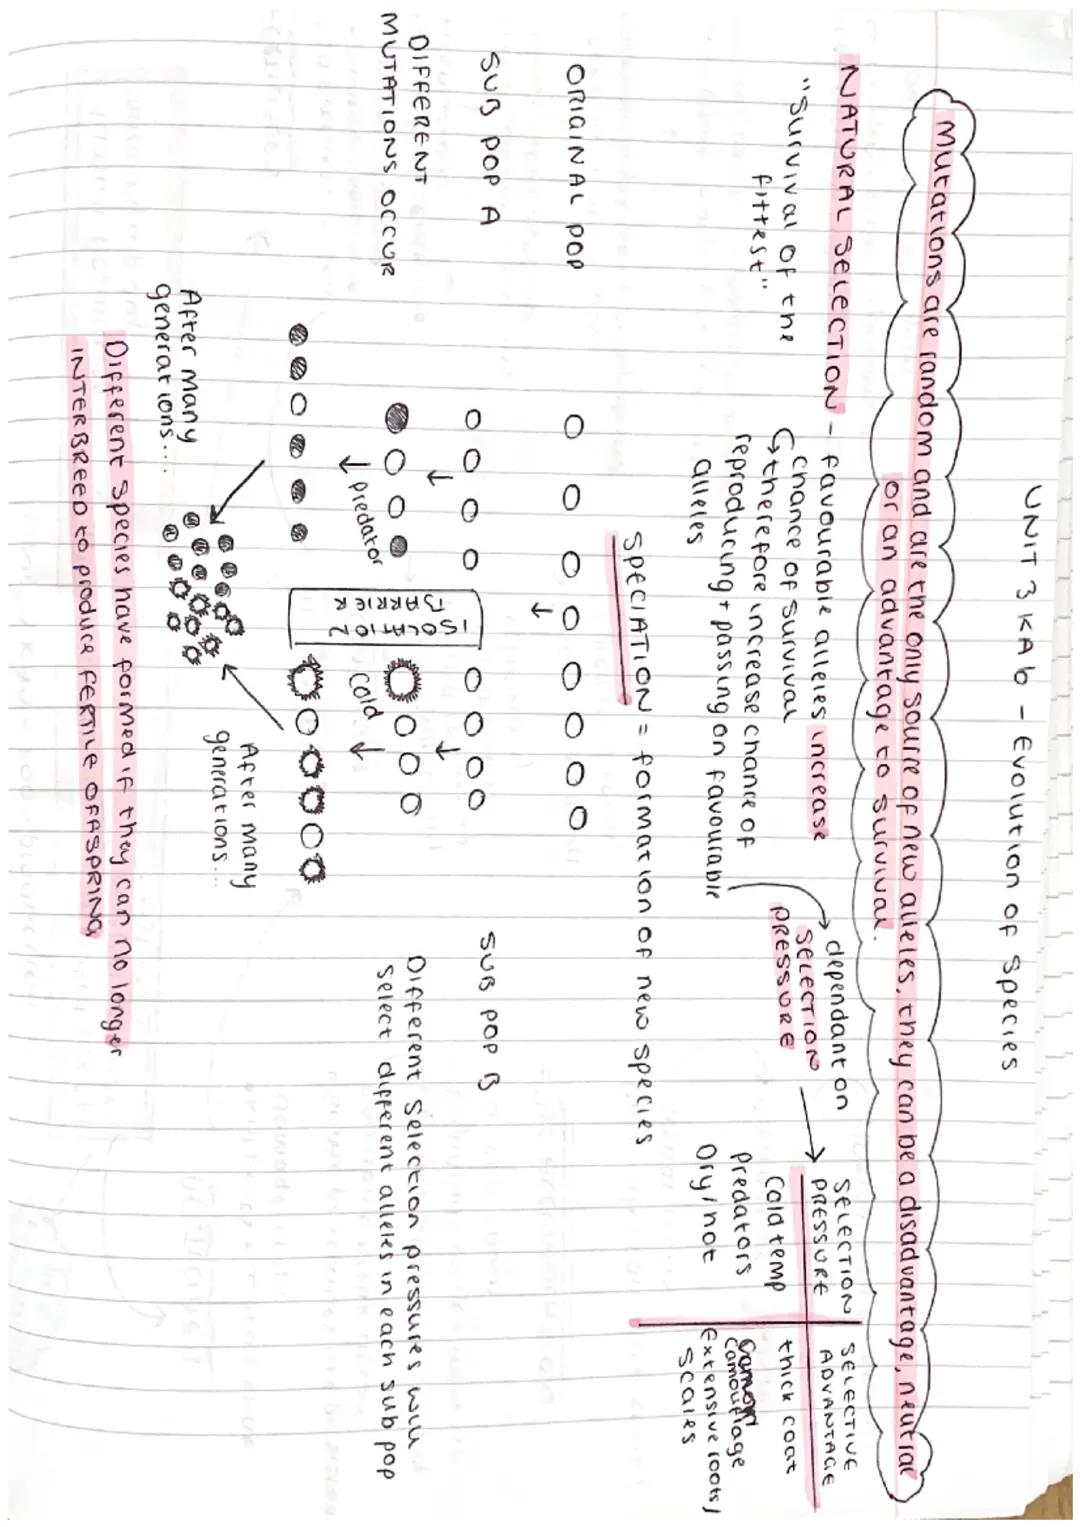 UNIT 3 KA6 - Evolution of species
Mutations are random and are the only source of new alleles, they can be a disadvantage, neutral
or an advantage to survival.
NATURAL SELECTION - favourable alleles increase
chance of survival
↳ therefore increase chance of
reproducing + passing on favourable
alleles
"survival of the
fittest"
dependant on
SELECTION
PRESSURE
SELECTION
PRESSURE
SELECTIVE
ADVANTAGE
Cold temp
thick coat
predators
camouflage
Dry/hot
Extensive roots/
Scales
SPECIATION = formation of new species
ORIGINAL POP
SUB POP A
SUB POP B
DIFFERENT
MUTATIONS OCCUR
ISOLATION
BARRIER
predator
cold
Different selection pressures will
select different alleles in each sub pop
After many
generations....
After many
generations...
Different species have formed if they can no longer
INTERBREED to produce FERTILE OFFSPRING